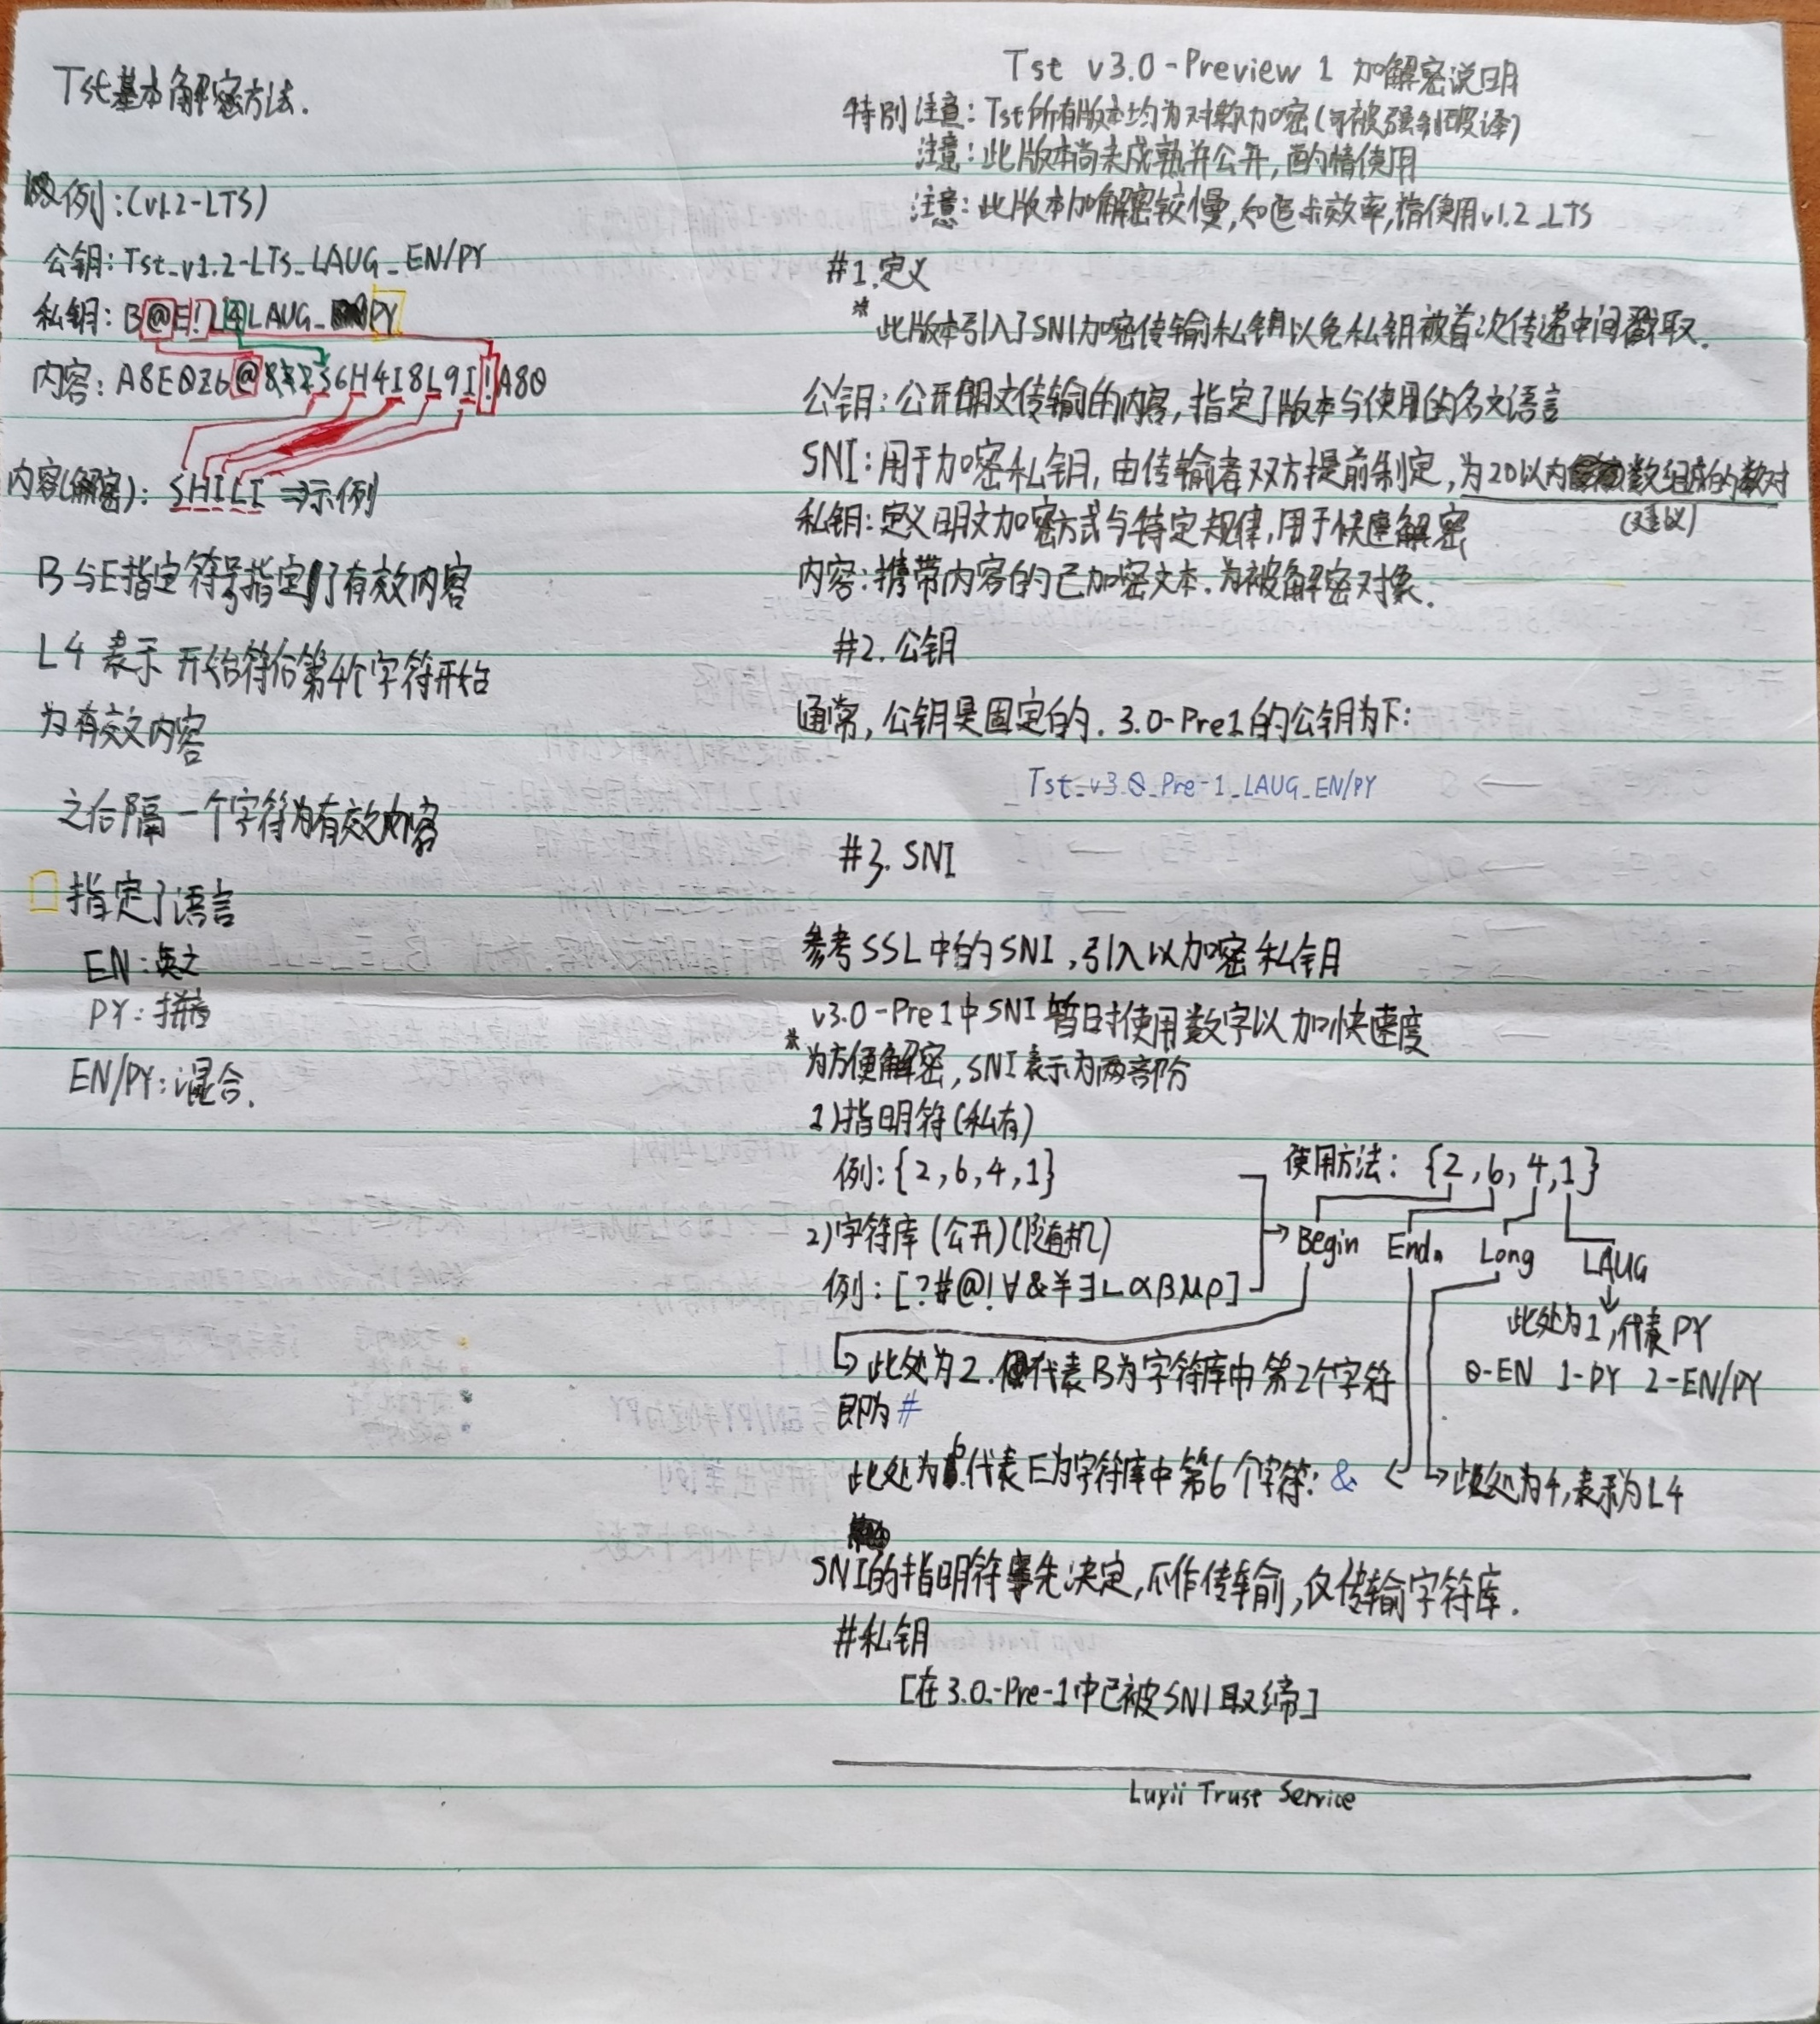 Tst基本解密方法.
例:(v1.2-LTS)
公钥:Tst_v1.2-LTS_LAUG_EN/PY
私钥:B@E!L4LAUG_PY
内容:A8EQZ6@8 2S6H4I8L9I!A80
内容(解密):SHILI⇒示例
B与E指定符号指定了有效内容
L4 表示 开始符后第4个字符开始
为有效内容
之后隔一个字符为有效内容
指定了语言
EN:英文
PY:拼音
EN/PY:混合.
Tst v3.0-Preview 1 加解密说明
特别注意:Tst所有版本均为对称加密(可被强制破译)
注意:此版本尚未成熟并公开,酌情使用
注意:此版本加解密较慢,如追求效率,请使用v1.2_LTS
#1.定义
*此版本引入了SNI加密传输私钥以免私钥被首次传递中间截取.
公钥:公开明文传输的内容,指定了版本与使用的名文语言
SNI:用于加密私钥,由传输者双方提前制定,为20以内数组成的数对
(建议)
私钥:定义明文加密方式与特定规律,用于快速解密
内容:携带内容的已加密文本.为被解密对象.
#2.公钥
通常,公钥是固定的.3.0-Pre1的公钥为下:
Tst_v3.0_Pre-1_LAUG_EN/PY
#3.SNI
参考SSL中的SNI,引入以加密私钥
v3.0-Pre1中SNI暂时使用数字以加快速度
*为方便解密,SNI表示为两部分
1)指明符(私有)
例:{2,6,4,1}
2)字符库(公开)(随机)
例:[?#@!∀&¥∃∟αβμρ]
使用方法:{2,6,4,1}
Begin End. Long LAUG
此处为1,代表PY
0-EN 1-PY 2-EN/PY
此处为2.代表B为字符库中第2个字符
即为#
此处为6.代表E为字符库中第6个字符:&
此处为4,表示为L4
SNI的指明符事先决定,不作传输,仅传输字符库.
#私钥
[在3.0-Pre-1中已被SNI取缔]
Luyii Trust Service